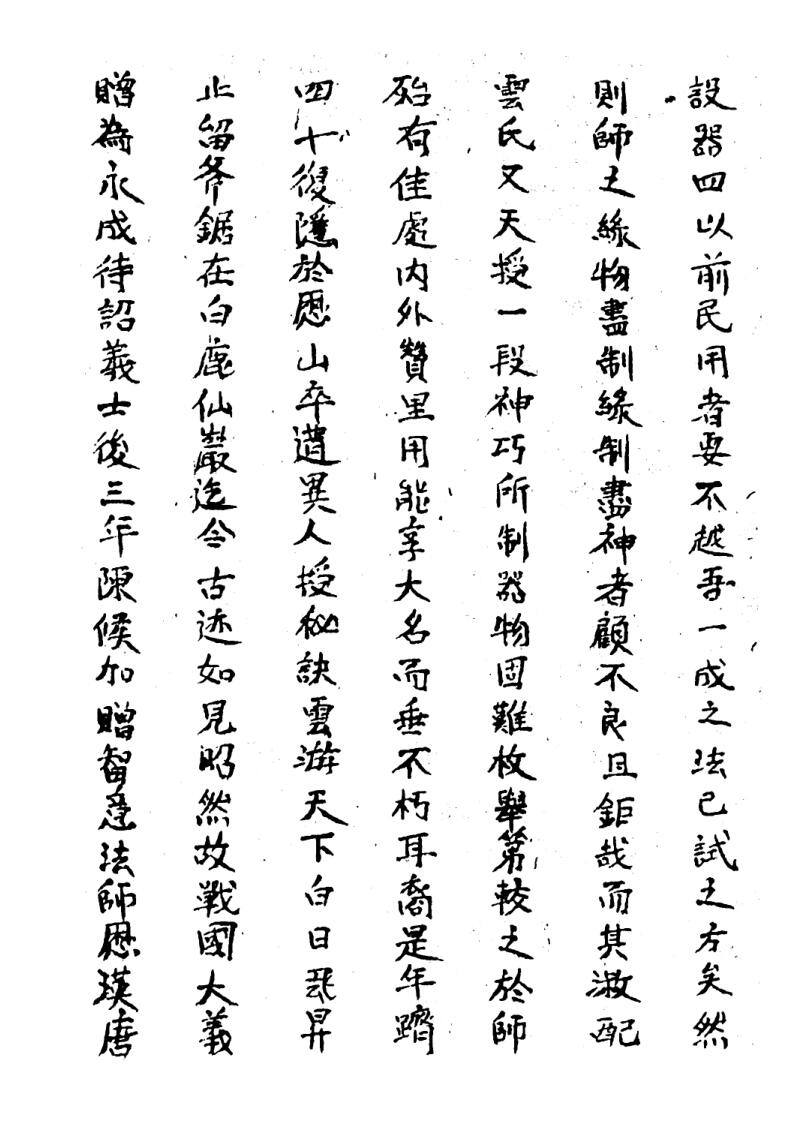 設器四以前民用者要不越吾一成之法已試之方矣然
則師之緣物盡制緣制盡神者顧不良且鉅哉而其淑配
雲氏又天授一段神巧所制器物固難枚舉第較之於師
殆有佳處内外贊里用能享大名而垂不朽耳裔是年躋
四十復隱於歷山卒遣異人授秘訣雲游天下白日飛昇
止留斧鋸在白鹿仙巖迄今古迹如見昭然故戰國大義
贈為永成待詔義士後三年陳侯加贈智惠法師歷漢唐